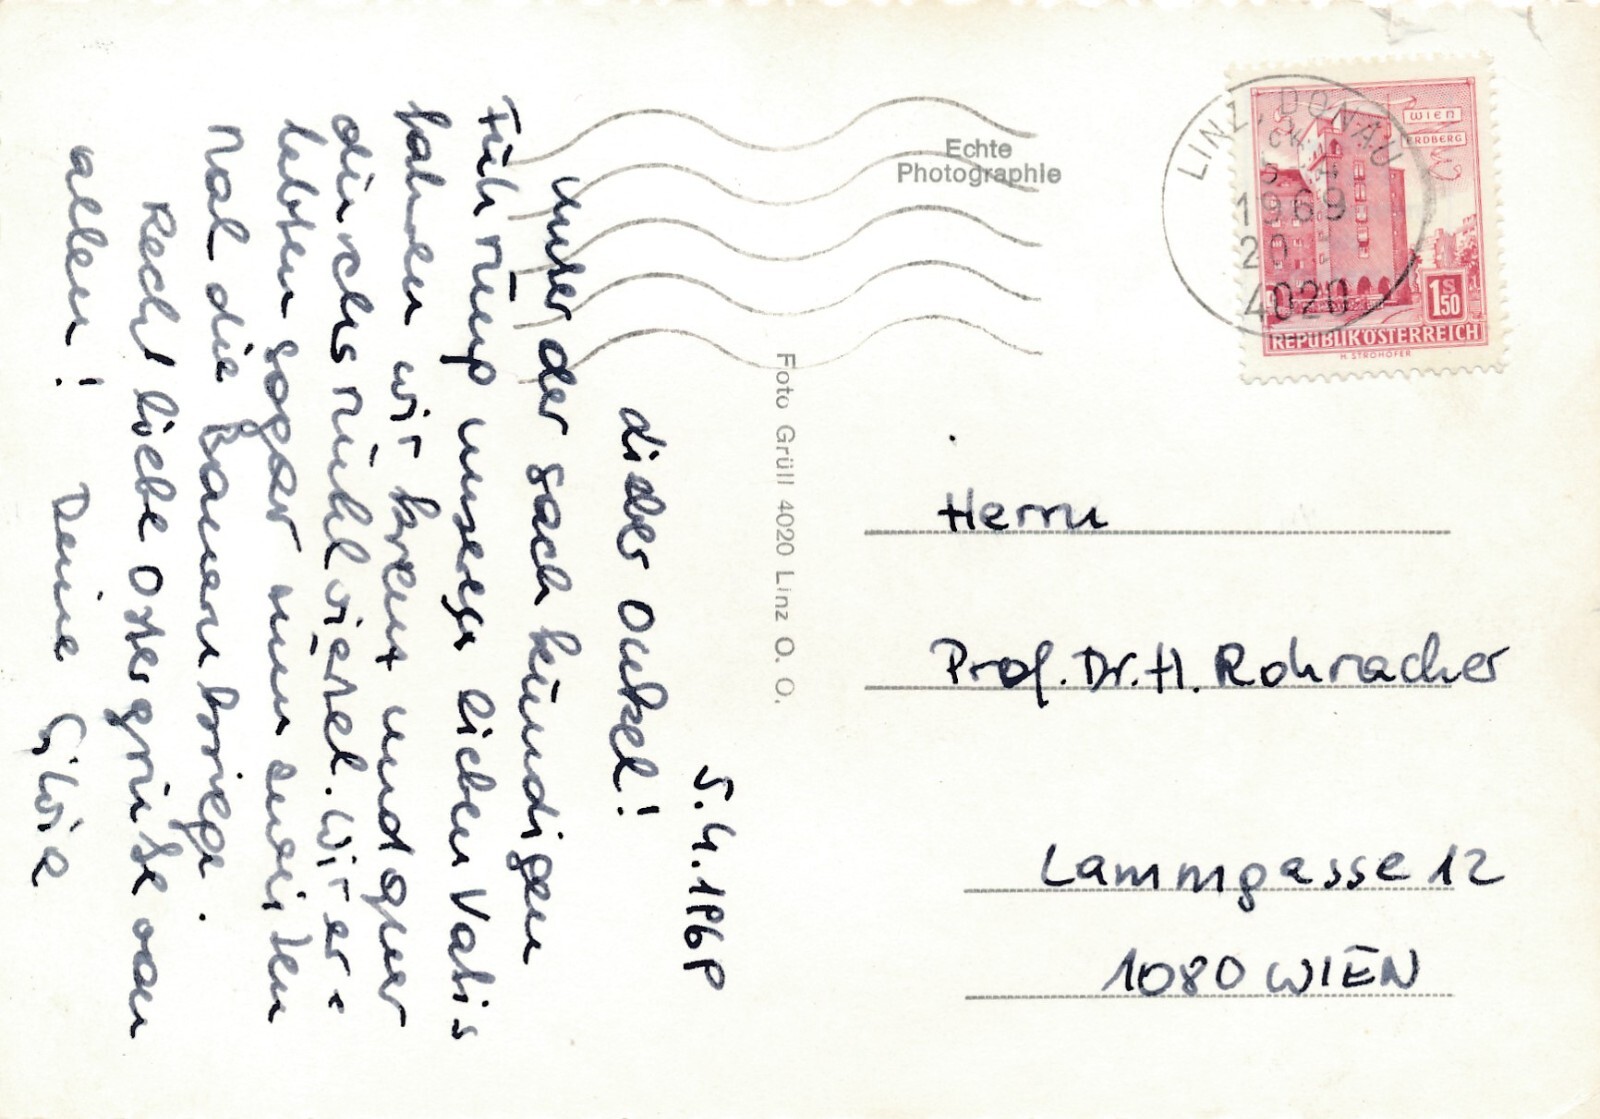 5.4.1969
Lieber Onkel!
Unter der sach kündigen
Führung unseres lieben Vatis
fahren wir kreuz und quer
durchs Mühlviertel. Wir er=
lebten sogar zum zweiten
Mal die Bauernkriege.
Recht liebe Ostergrüße von
allen! Deine Silvia
Echte
Photographie
Foto Grüll 4020 Linz O. Ö.
LINZ, DONAU
1969
20
4020
WIEN
ERDBERG
1S50
REPUBLIK ÖSTERREICH
H. STROHOFER
Herrn
Prof. Dr. H. Rohracher
Lammgasse 12
1080 WIEN